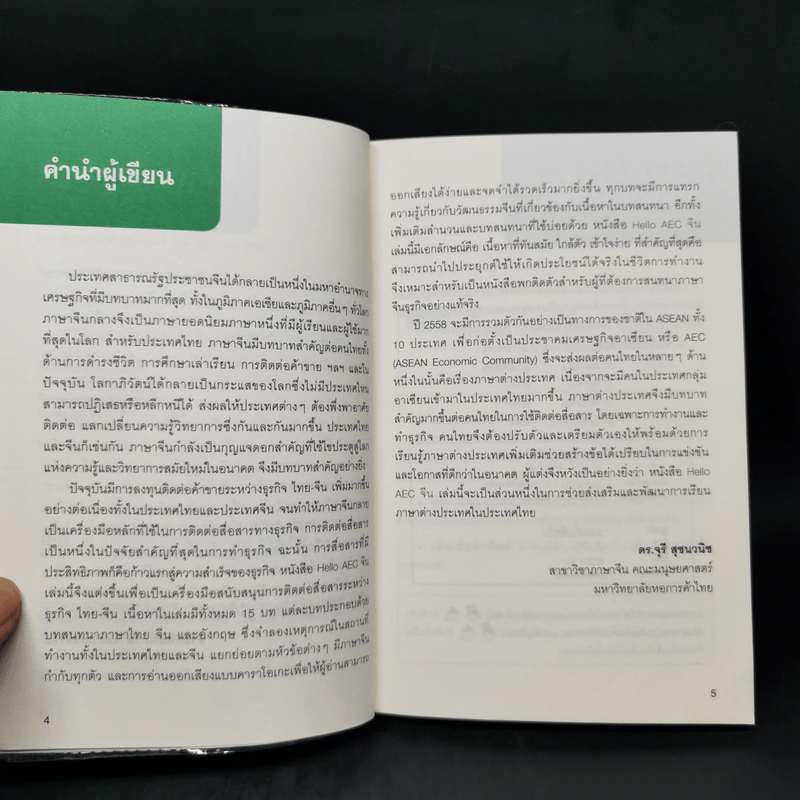 คำนำผู้เขียน
ประเทศสาธารณรัฐประชาชนจีนได้กลายเป็นหนึ่งในมหาอำนาจทาง
เศรษฐกิจที่มีบทบาทมากที่สุด ทั้งในภูมิภาคเอเชียและภูมิภาคอื่นๆ ทั่วโลก
ภาษาจีนกลางจึงเป็นภาษายอดนิยมภาษาหนึ่งที่มีผู้เรียนและผู้ใช้มาก
ที่สุดในโลก สำหรับประเทศไทย ภาษาจีนมีบทบาทสำคัญต่อคนไทยทั้ง
ด้านการดำรงชีวิต การศึกษาเล่าเรียน การติดต่อค้าขาย ฯลฯ และใน
ปัจจุบัน โลกาภิวัตน์ได้กลายเป็นกระแสของโลกซึ่งไม่มีประเทศไหน
สามารถปฏิเสธหรือหลีกหนีได้ ส่งผลให้ประเทศต่างๆ ต้องพึ่งพาอาศัย
ติดต่อ แลกเปลี่ยนความรู้วิทยาการซึ่งกันและกันมากขึ้น ประเทศไทย
และจีนก็เช่นกัน ภาษาจีนกำลังเป็นกุญแจดอกสำคัญที่ใช้ไขประตูสู่โลก
แห่งความรู้และวิทยาการสมัยใหม่ในอนาคต จึงมีบทบาทสำคัญอย่างยิ่ง
ปัจจุบันมีการลงทุนติดต่อค้าขายระหว่างธุรกิจ ไทย-จีน เพิ่มมากขึ้น
อย่างต่อเนื่องทั้งในประเทศไทยและประเทศจีน จนทำให้ภาษาจีนกลาย
เป็นเครื่องมือหลักที่ใช้ในการติดต่อสื่อสารทางธุรกิจ การติดต่อสื่อสาร
เป็นหนึ่งในปัจจัยสำคัญที่สุดในการทำธุรกิจ ฉะนั้น การสื่อสารที่มี
ประสิทธิภาพก็คือก้าวแรกสู่ความสำเร็จของธุรกิจ หนังสือ Hello AEC จีน
เล่มนี้จึงแต่งขึ้นเพื่อเป็นเครื่องมือสนับสนุนการติดต่อสื่อสารระหว่าง
ธุรกิจ ไทย-จีน เนื้อหาในเล่มมีทั้งหมด 15 บท แต่ละบทประกอบด้วย
บทสนทนาภาษาไทย จีน และอังกฤษ ซึ่งจำลองเหตุการณ์ในสถานที่
ทำงานทั้งในประเทศไทยและจีน แยกย่อยตามหัวข้อต่างๆ มีภาษาจีน
กำกับทุกตัว และการอ่านออกเสียงแบบคาราโอเกะเพื่อให้ผู้อ่านสามารถ
4
ออกเสียงได้ง่ายและจดจำได้รวดเร็วมากยิ่งขึ้น ทุกบทจะมีการแทรก
ความรู้เกี่ยวกับวัฒนธรรมจีนที่เกี่ยวข้องกับเนื้อหาในบทสนทนา อีกทั้ง
เพิ่มเติมสำนวนและบทสนทนาที่ใช้บ่อยด้วย หนังสือ Hello AEC จีน
เล่มนี้มีเอกลักษณ์คือ เนื้อหาที่ทันสมัย ใกล้ตัว เข้าใจง่าย ที่สำคัญที่สุดคือ
สามารถนำไปประยุกต์ใช้ให้เกิดประโยชน์ได้จริงในชีวิตการทำงาน
จึงเหมาะสำหรับเป็นหนังสือพกติดตัวสำหรับผู้ที่ต้องการสนทนาภาษา
จีนธุรกิจอย่างแท้จริง
ปี 2558 จะมีการรวมตัวกันอย่างเป็นทางการของชาติใน ASEAN ทั้ง
10 ประเทศ เพื่อก่อตั้งเป็นประชาคมเศรษฐกิจอาเซียน หรือ AEC
(ASEAN Economic Community) ซึ่งจะส่งผลต่อคนไทยในหลายๆ ด้าน
หนึ่งในนั้นคือเรื่องภาษาต่างประเทศ เนื่องจากจะมีคนในประเทศกลุ่ม
อาเซียนเข้ามาในประเทศไทยมากขึ้น ภาษาต่างประเทศจึงมีบทบาท
สำคัญมากขึ้นต่อคนไทยในการใช้ติดต่อสื่อสาร โดยเฉพาะการทำงานและ
ทำธุรกิจ คนไทยจึงต้องปรับตัวและเตรียมตัวเองให้พร้อมด้วยการ
เรียนรู้ภาษาต่างประเทศเพิ่มเติมช่วยสร้างข้อได้เปรียบในการแข่งขัน
และโอกาสที่ดีกว่าในอนาคต ผู้แต่งจึงหวังเป็นอย่างยิ่งว่า หนังสือ Hello
AEC จีน เล่มนี้จะเป็นส่วนหนึ่งในการช่วยส่งเสริมและพัฒนาการเรียน
ภาษาต่างประเทศในประเทศไทย
ดร.จุรี สุชนวนิช
สาขาวิชาภาษาจีน คณะมนุษยศาสตร์
มหาวิทยาลัยหอการค้าไทย
5